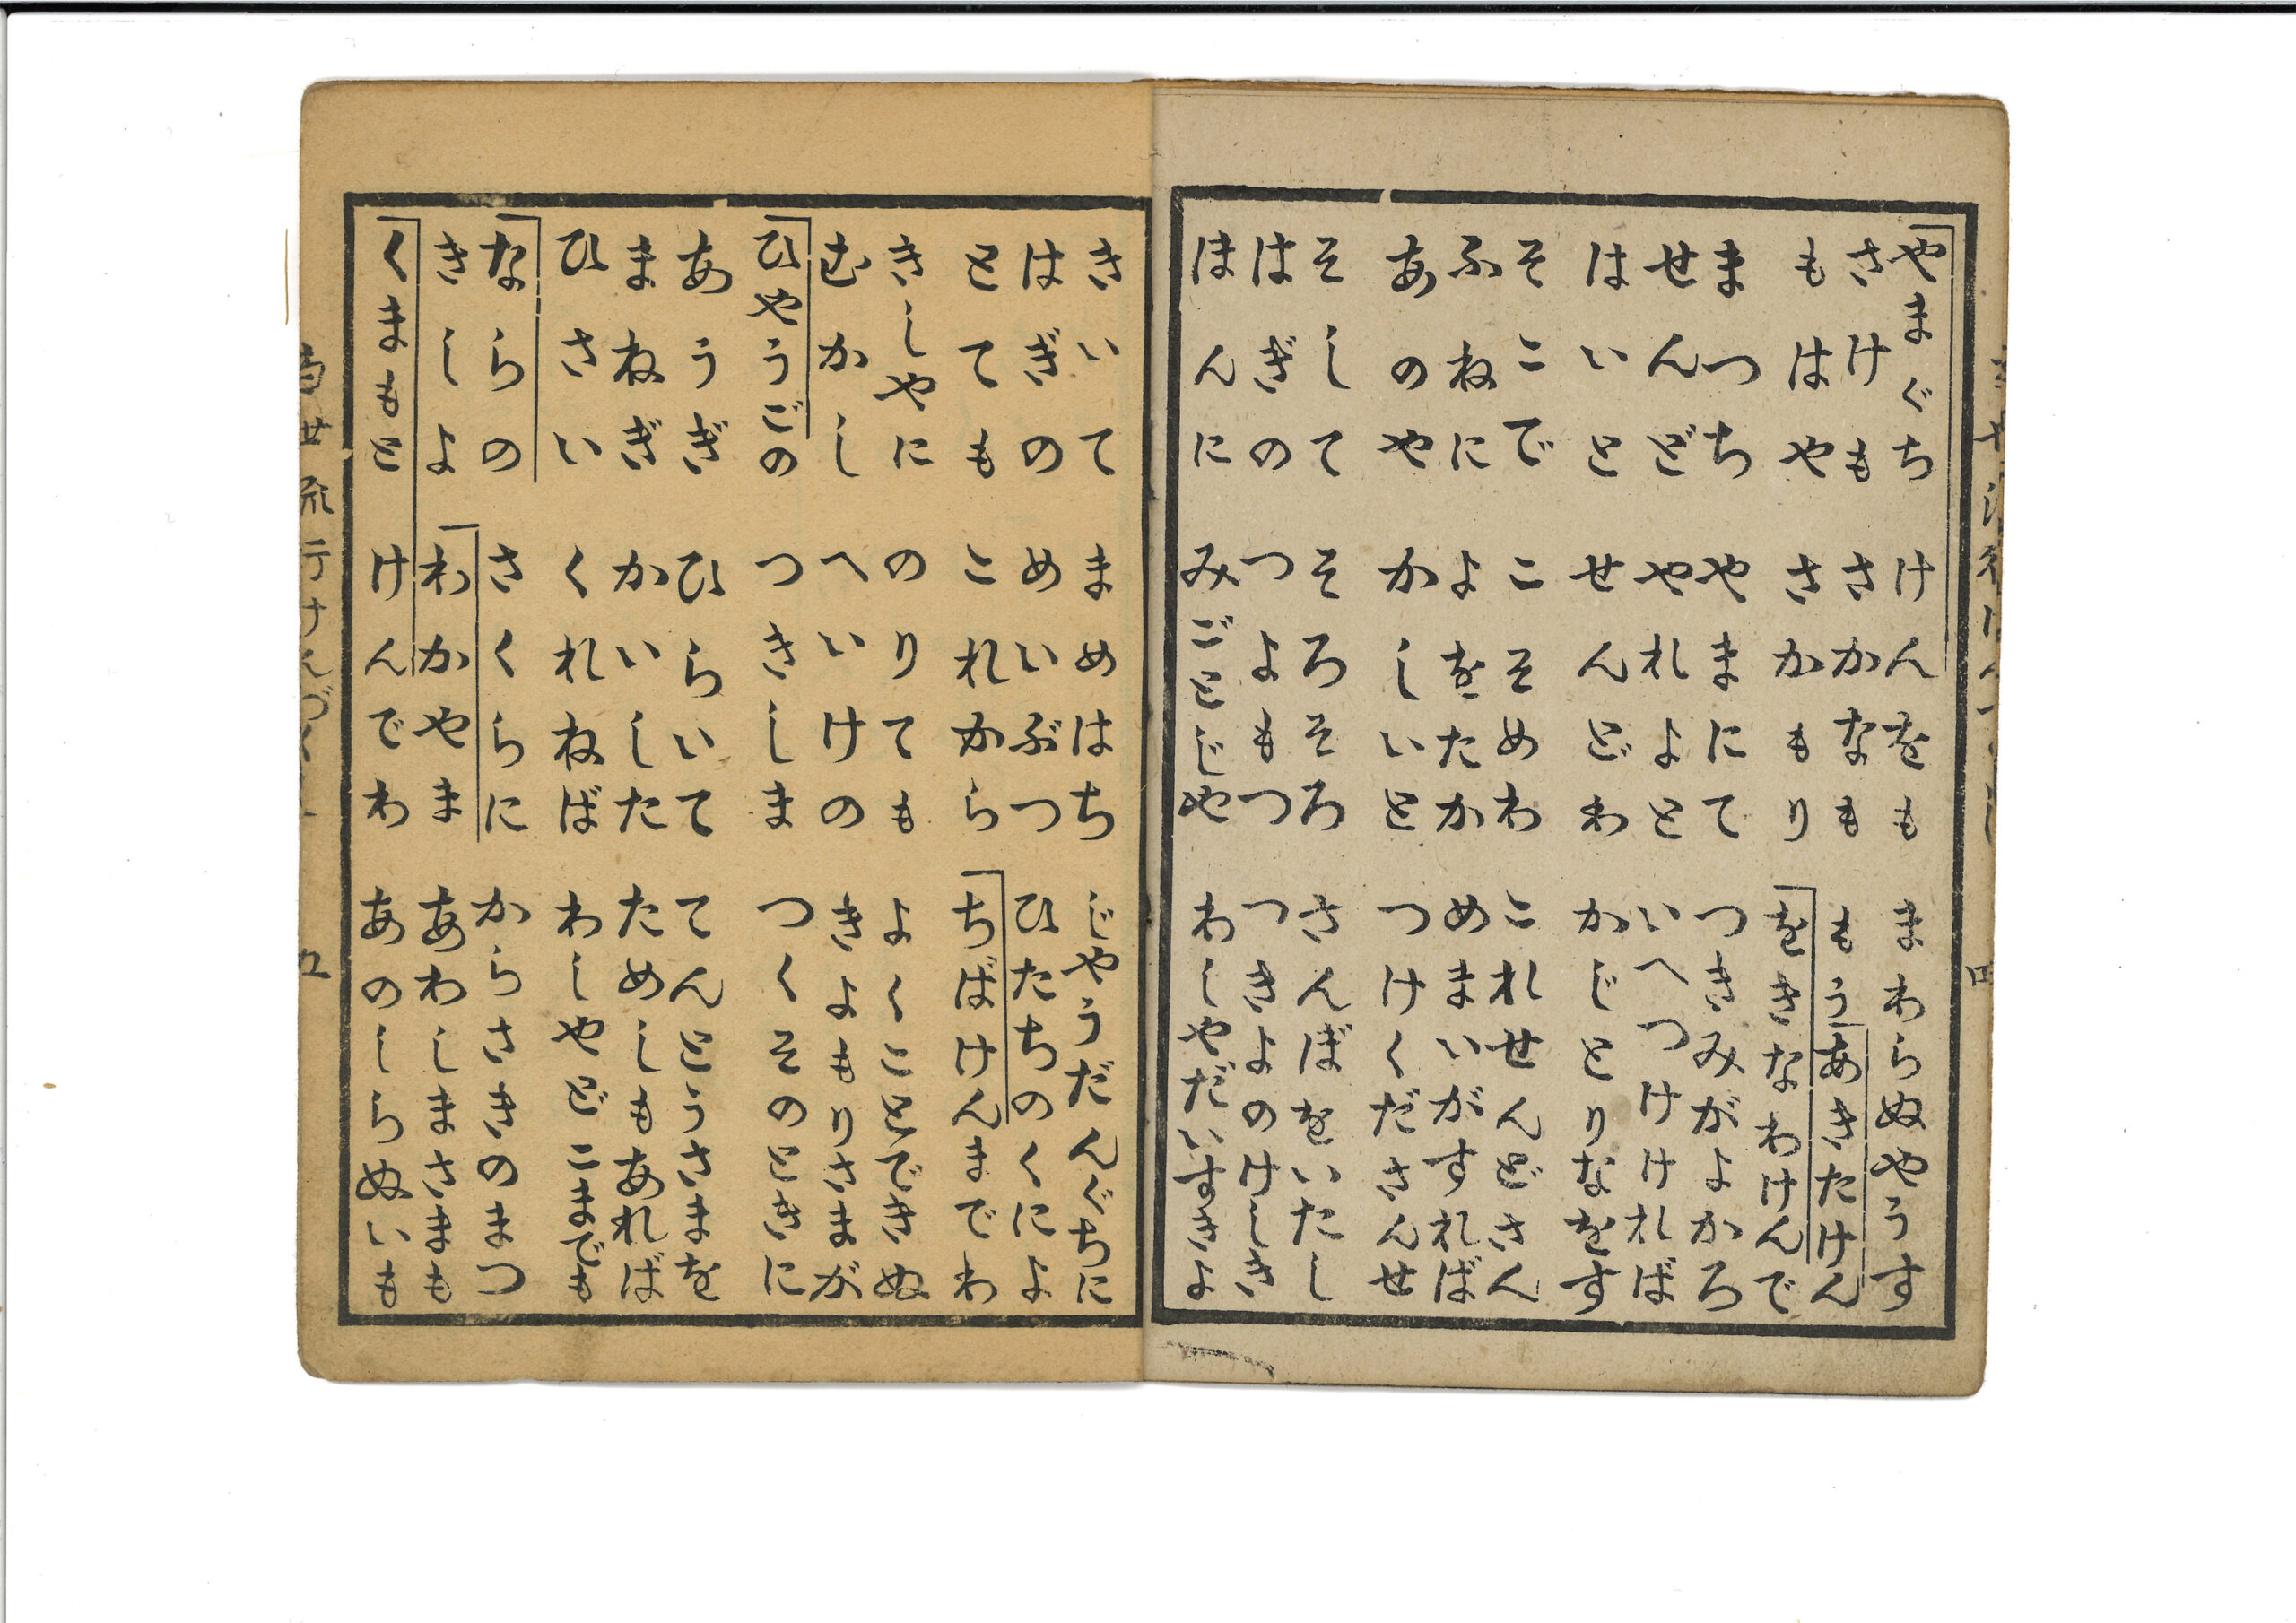 やまぐち けんをも まわらぬやうす
さけも さかなも もうあきたけん
もはや さかもり をきなわけんで
まつち やまにて つきみがよかろ
せんど やれよと いへつけければ
はいと せんどわ かじとりなをす
そこで こそめわ これせんどさん
ふねに よをたか めまいがすれば
あのや かしいと つけくださんせ
そして そろそろ さんぼをいたし
はぎの つよもつ つきよのけしき
ほんに みごとじや わしやだいすきよ
きいて まめはち じやうだんぐちに
はぎの めいぶつ ひたちのくによ
とても これから ちばけんまでわ
きしやに のりても よくことできぬ
むかし へいけの きよもりさまが
ひやうごの つきしま つくそのときに
あうぎ ひらいて てんとうさまを
まねぎ かいした ためしもあれば
ひさい くれねば わしやどこまでも
ならの さくらに からさきのまつ
きしよ わかやま あわしまさまも
くまもと けんでわ あのしらぬいも
当世流行けんづく 五